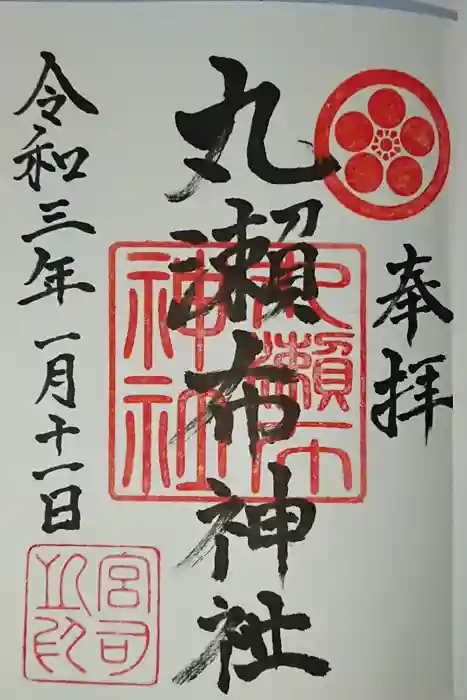 奉拝
丸瀬布神社
丸瀬布神社
令和三年一月十一日
宮司之印